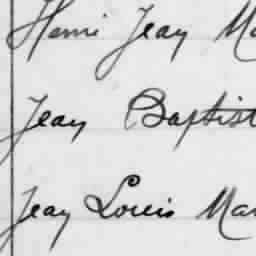 Henri Jean Ma
Jean Baptist
Jean Louis Mar